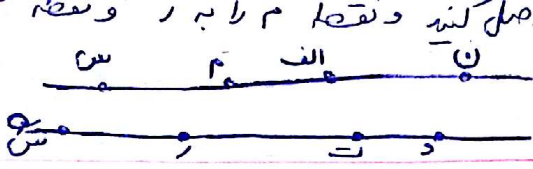 وصل کنید و نقطه م را به ر و نقطه
ن الف م س
د ت ر ش